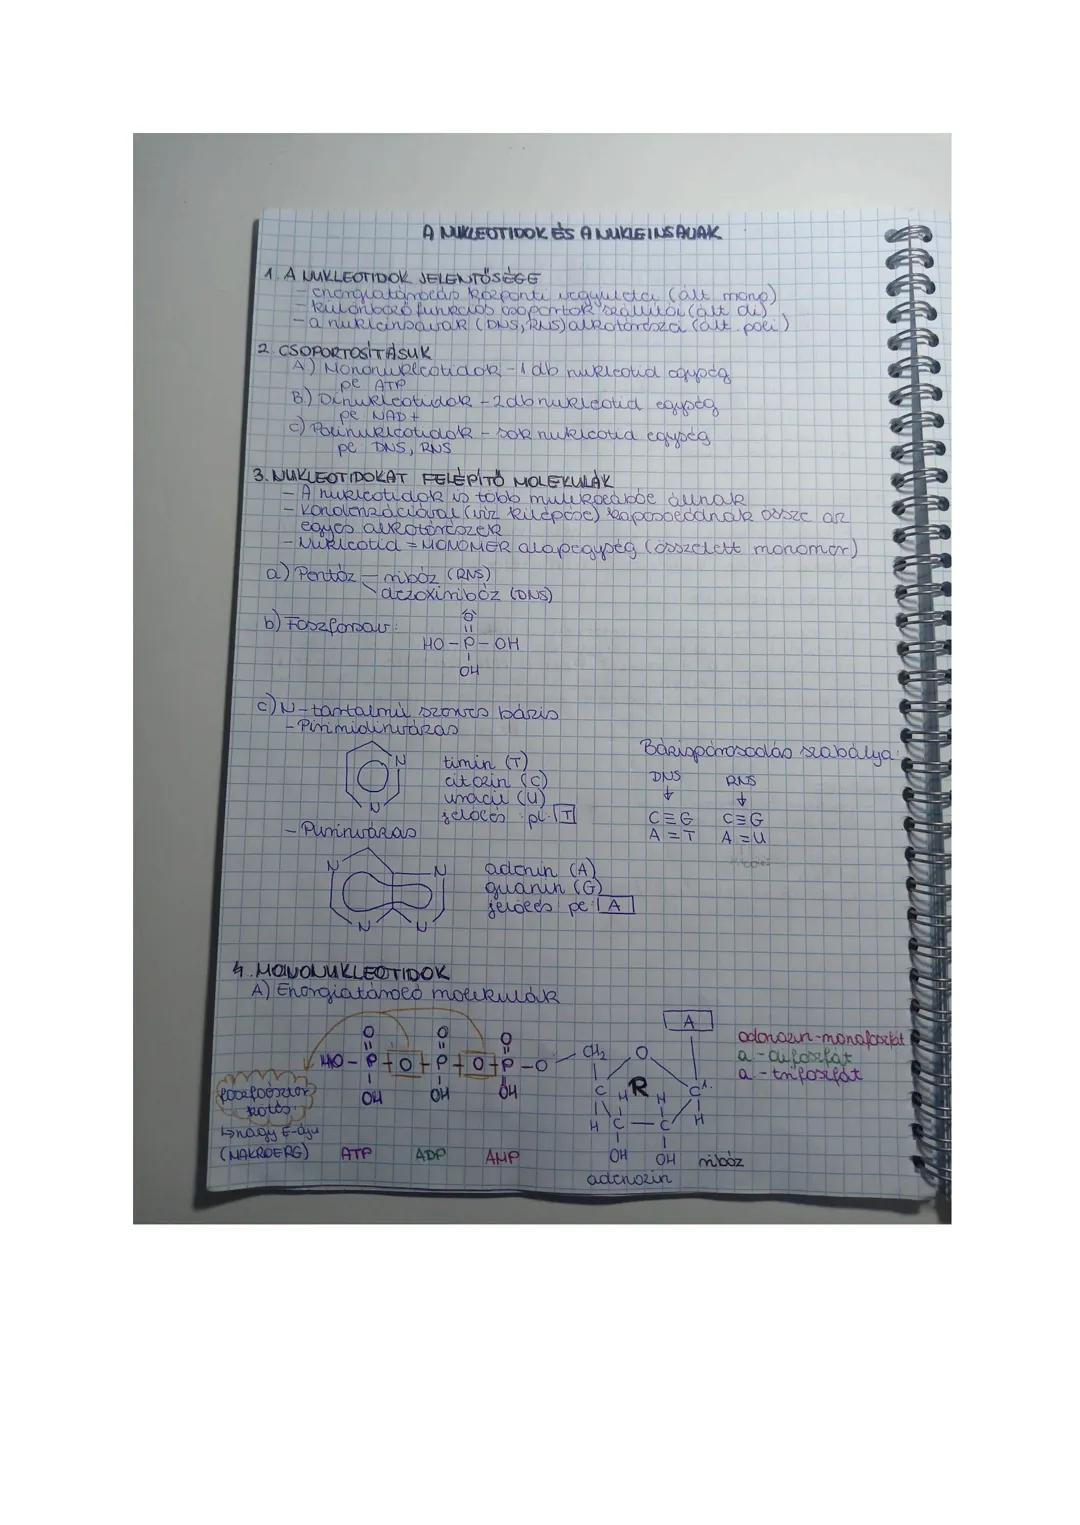 A NUKLEOTIDOK ÉS A NUKLEINSAVAK
1. A NUKLEOTIDOK JELENTŐSÉGE
- energiatárolás központi vegyületei (ált mono)
- különböző funkciós csoportok szállítói (ált di)
- a nukleinsavak (DNS, RNS) alkotórészei (ált. poli)
2. CSOPORTOSÍTÁSUK
A) Mononukleotidok - 1 db nukleotid egység
pl ATP
B) Dinukleotidok - 2 db nukleotid egység
pl NAD+
C) Polinukleotidok - sok nukleotid egység
pl DNS, RNS
3. NUKLEOTIDOKAT FELÉPÍTŐ MOLEKULÁK
- A nukleotidok is több molekulából állnak
- Kondenzációval (víz kilépése) kapcsolódnak össze az
egyes alkotórészek
- Nukleotid = MONOMER alapegység (összetett monomer)
a) Pentóz - ribóz (RNS)
dezoxiribóz (DNS)
b) Foszforsav:
O
HO - P - OH
OH
c) N-tartalmú szerves bázis
- Pirimidinvázas
N
N
timin (T)
citozin (C)
uracil (U)
jelölés pl: T
Bázispárosodás szabálya:
DNS RNS
C≡G C≡G
A=T A=U
- Purinvázas
N N
N N
adenin (A)
guanin (G)
jelölés pl: A
4. MONONUKLEOTIDOK
A) Energiatároló molekulák
A
adenozin-monofoszfát
a - difoszfát
a - trifoszfát
O O O
HO - P - O - P - O - P - O - CH2 O
OH OH OH
C R C1.
H H
H C - C H
OH OH ribóz
adenozin
foszfoészter
kötés
↳ nagy E-ájú
(MAKROERG)
ATP ADP AMP